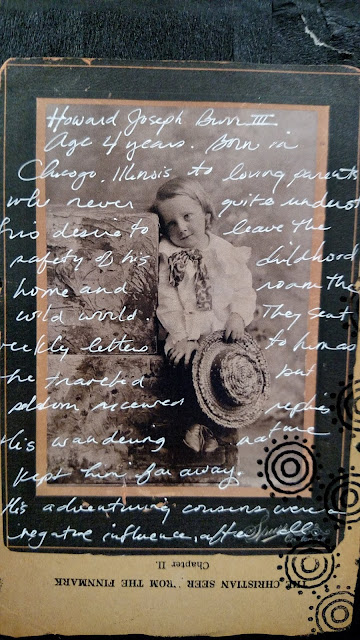 Howard Joseph Burr III
Age 4 years. Born in
Chicago, Illinois to loving parents
who never quite underst
his desire to leave the
safety of his childhood
home and roam the
wild world. They sent
weekly letters to him as
he traveled but
seldom received replies
His wandering nature
kept him far away.
His adventuring cousins were a
negative influence, after all
Chapter II.
THE CHRISTIAN SEER FROM THE FINNMARK